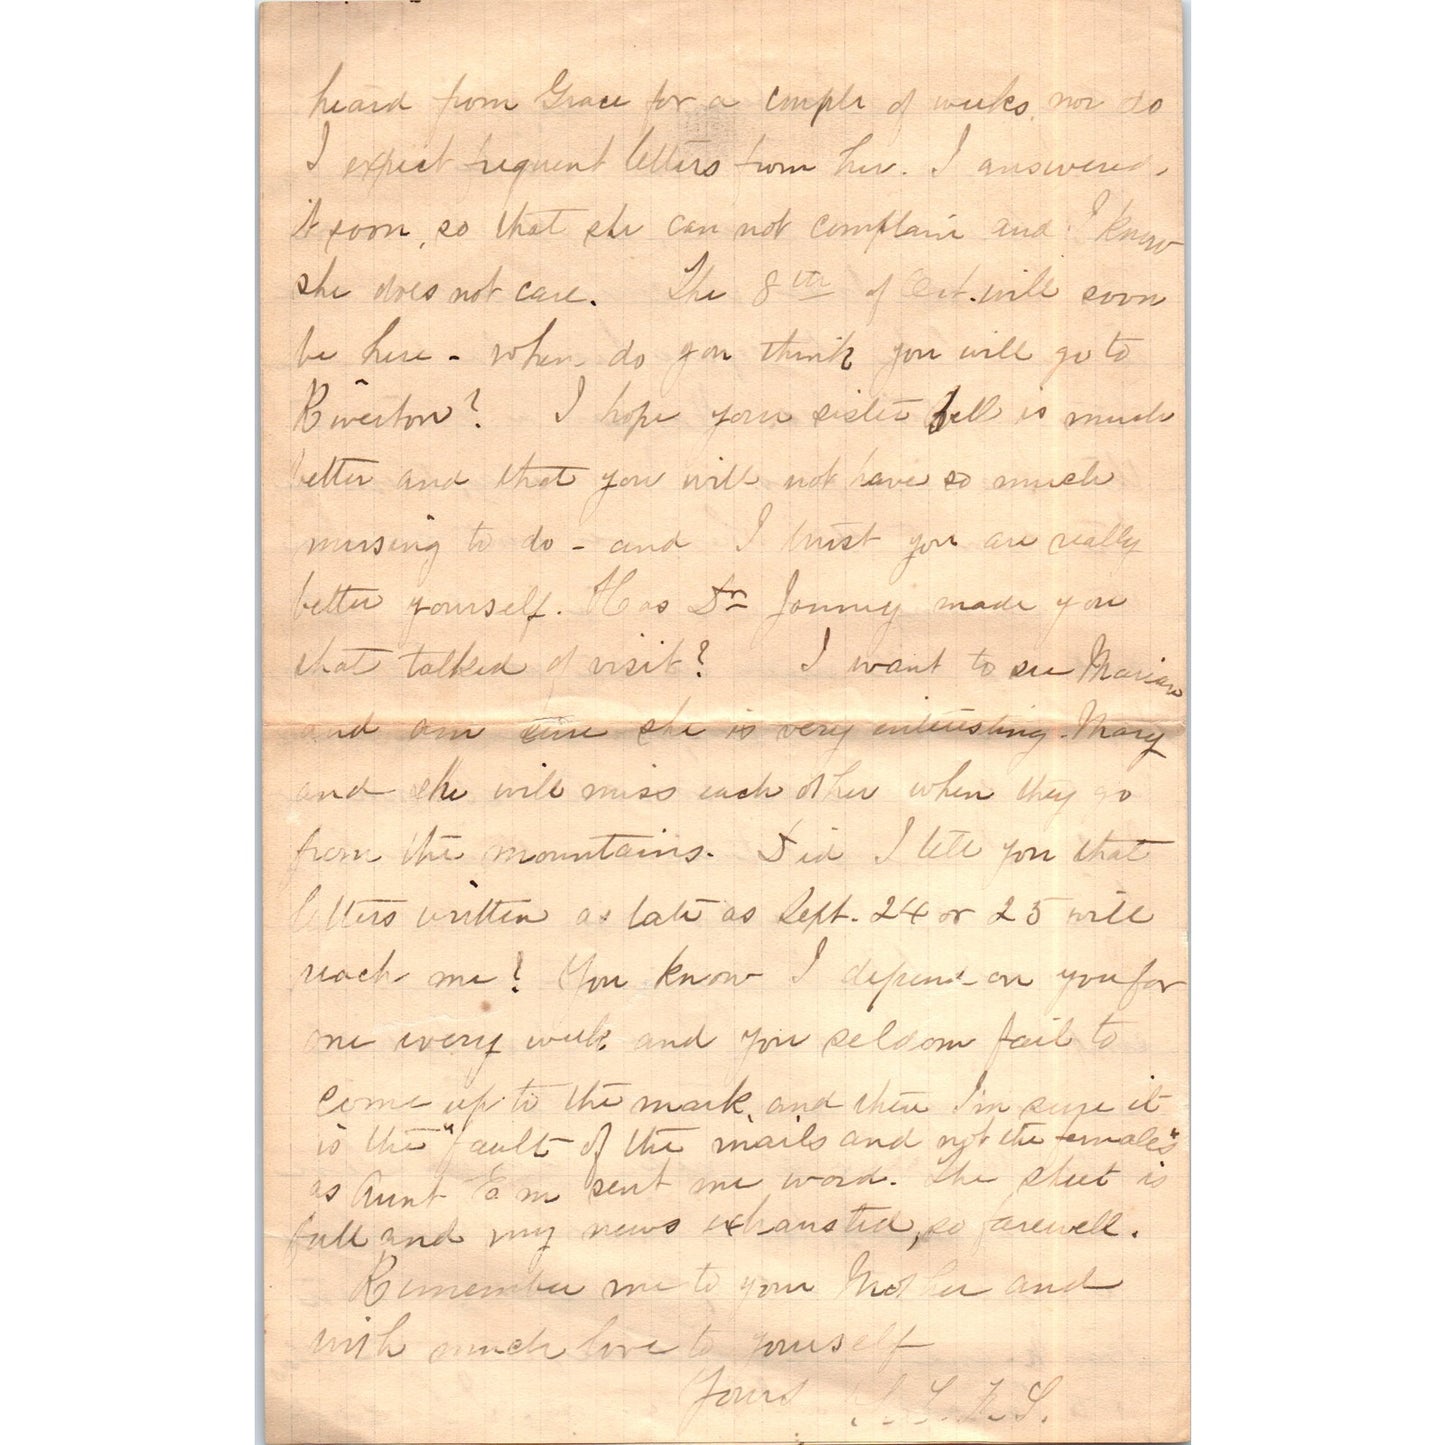 heard from Grace for a couple of weeks, nor do
I expect frequent letters from her. I answered
it soon, so that she can not complain and I know
she does not care. The 8th of Oct. will soon
be here - when do you think you will go to
Riverton? I hope your sister Nell is much
better and that you will not have so much
nursing to do - and I trust you are really
better yourself. Has Dr Janney made you
that talked of visit? I want to see Marian
and am sure she is very interesting. Mary
and she will miss each other when they go
from the mountains. Did I tell you that
letters written as late as Sept. 24 or 25 will
reach me? You know I depend on you for
one every week and you seldom fail to
come up to the mark, and then I'm sure it
is the "fault of the mails and not the females"
as Aunt Em sent me word. The sheet is
full and my news exhausted, so farewell.
Remember me to your Mother and
with much love to yourself
Yours